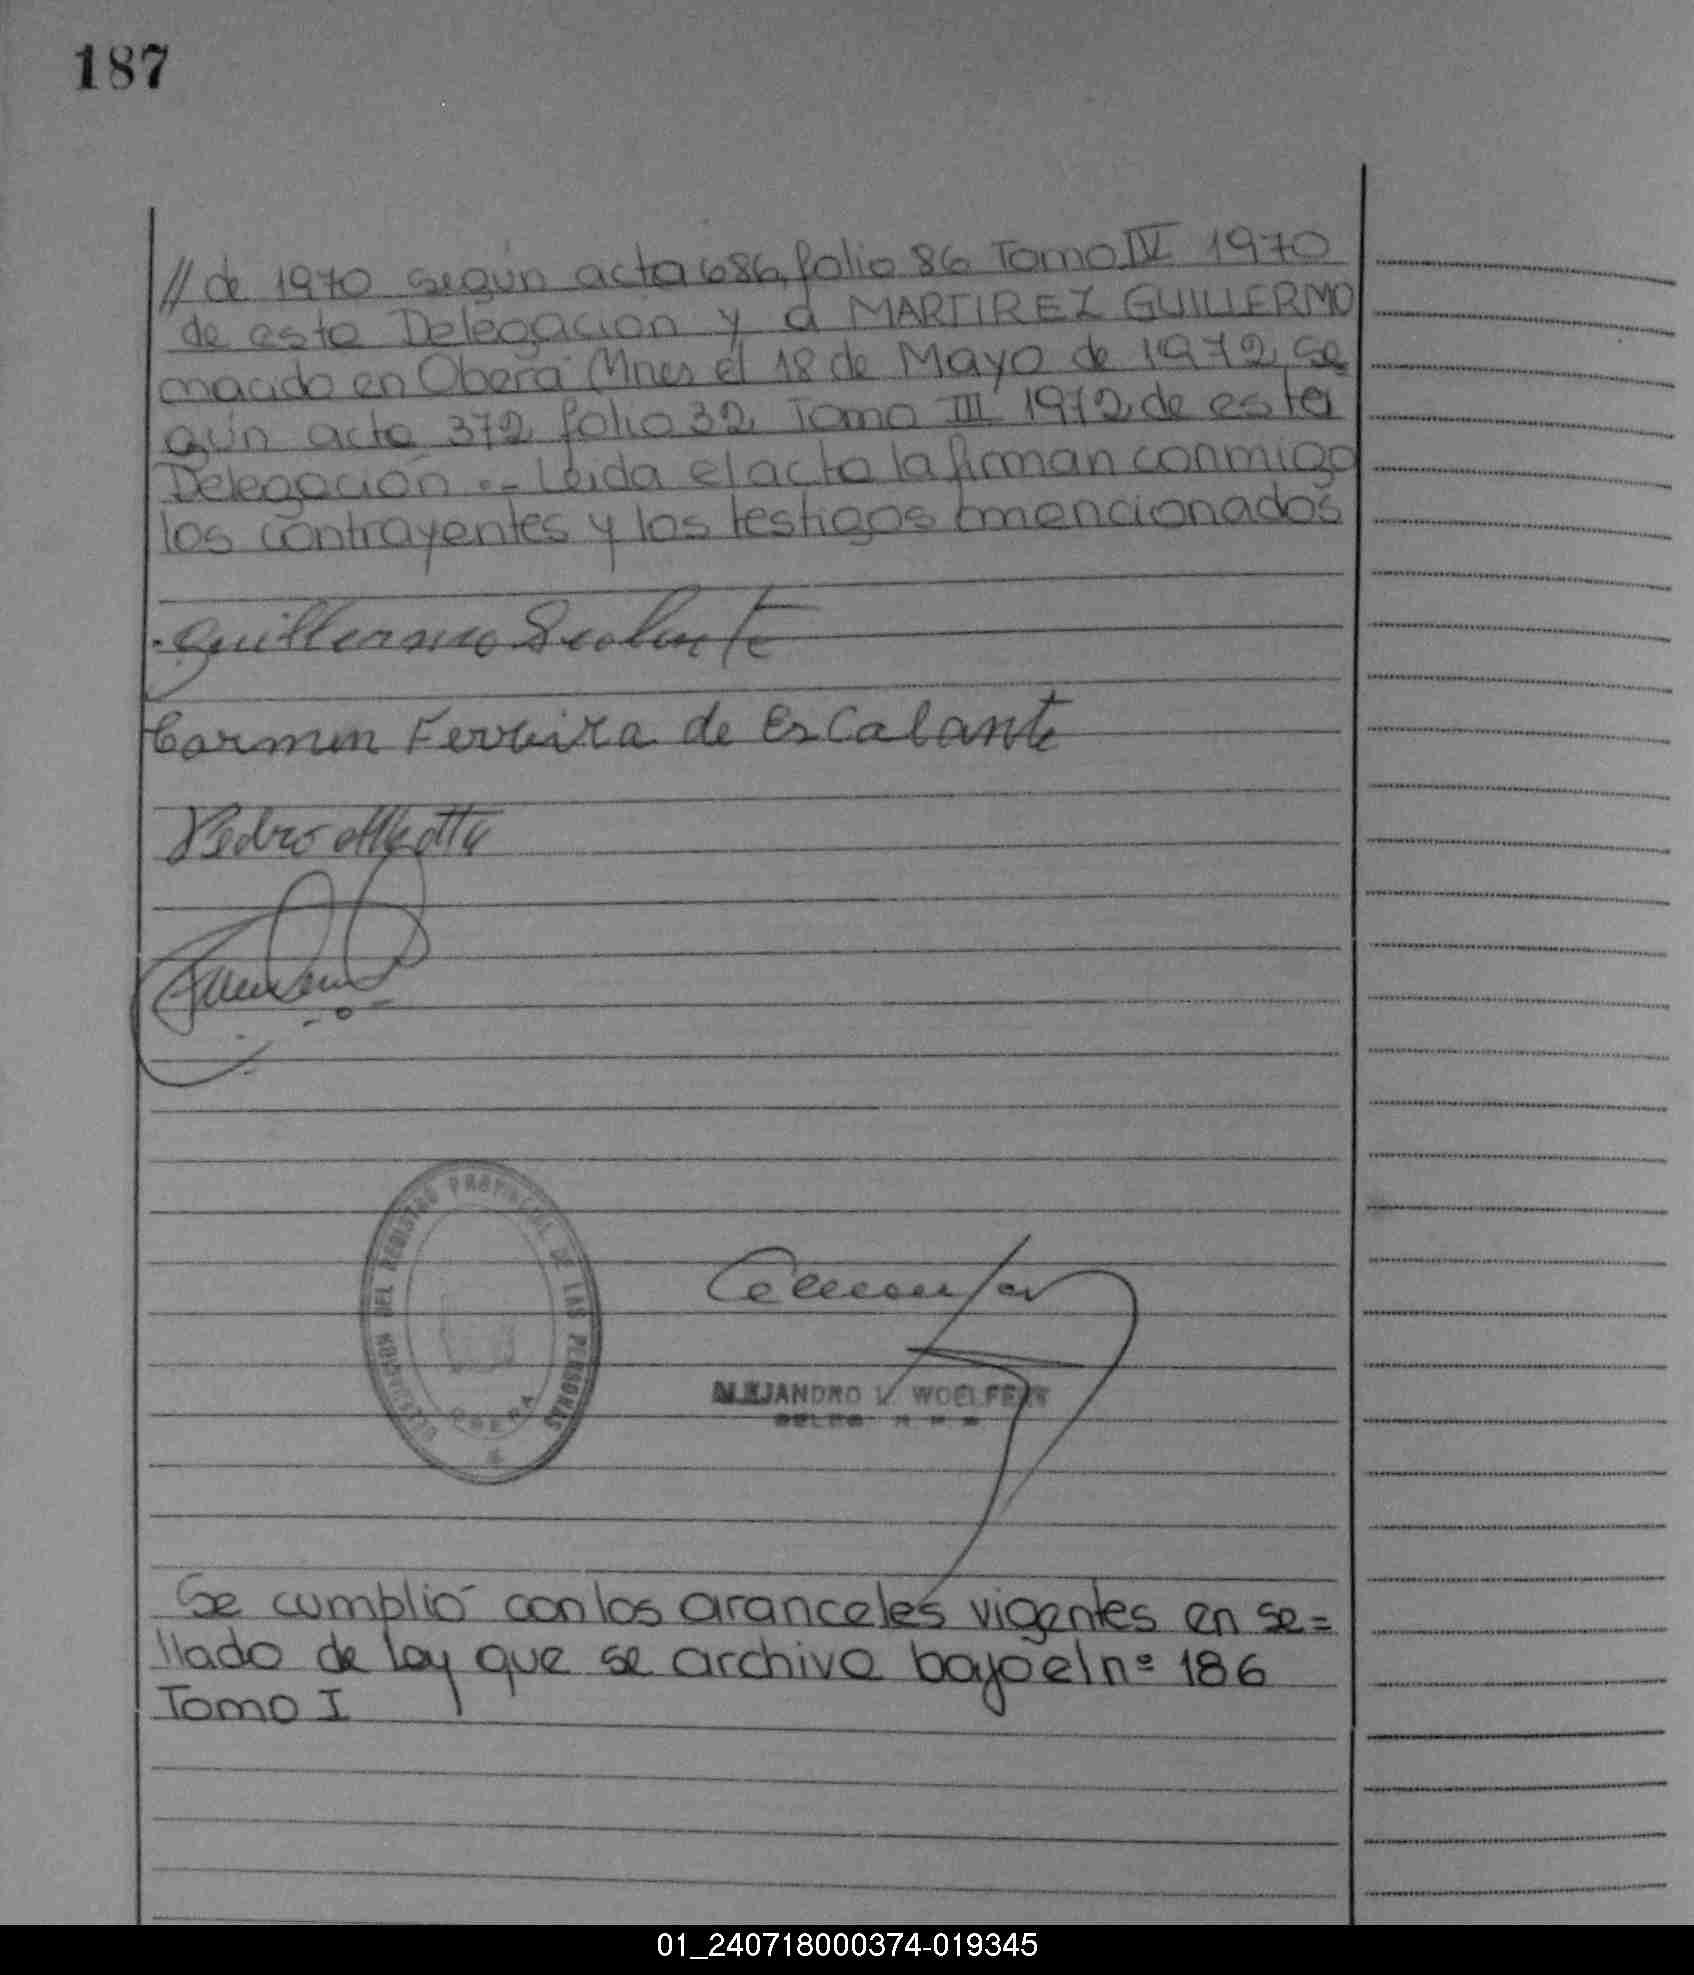 187
// de 1970 según acta 686 folio 86 Tomo IV 1970
de esta Delegación y a MARTIREZ GUILLERMO
nacido en Oberá Mnes el 18 de Mayo de 1972 se
gún acta 372 folio 32 Tomo III 1972 de esta
Delegación.- Leida el acta la firman conmigo
los contrayentes y los testigos mencionados
Guillermo
Carmen Ferreira de Escalante
Pedro
DEL REGISTRO PROVINCIAL DE LAS PERSONAS
OBERA
ALEJANDRO
Se cumplió con los aranceles vigentes en se=
llado de ley que se archiva bajo el nº 186
Tomo I
01_240718000374-019345